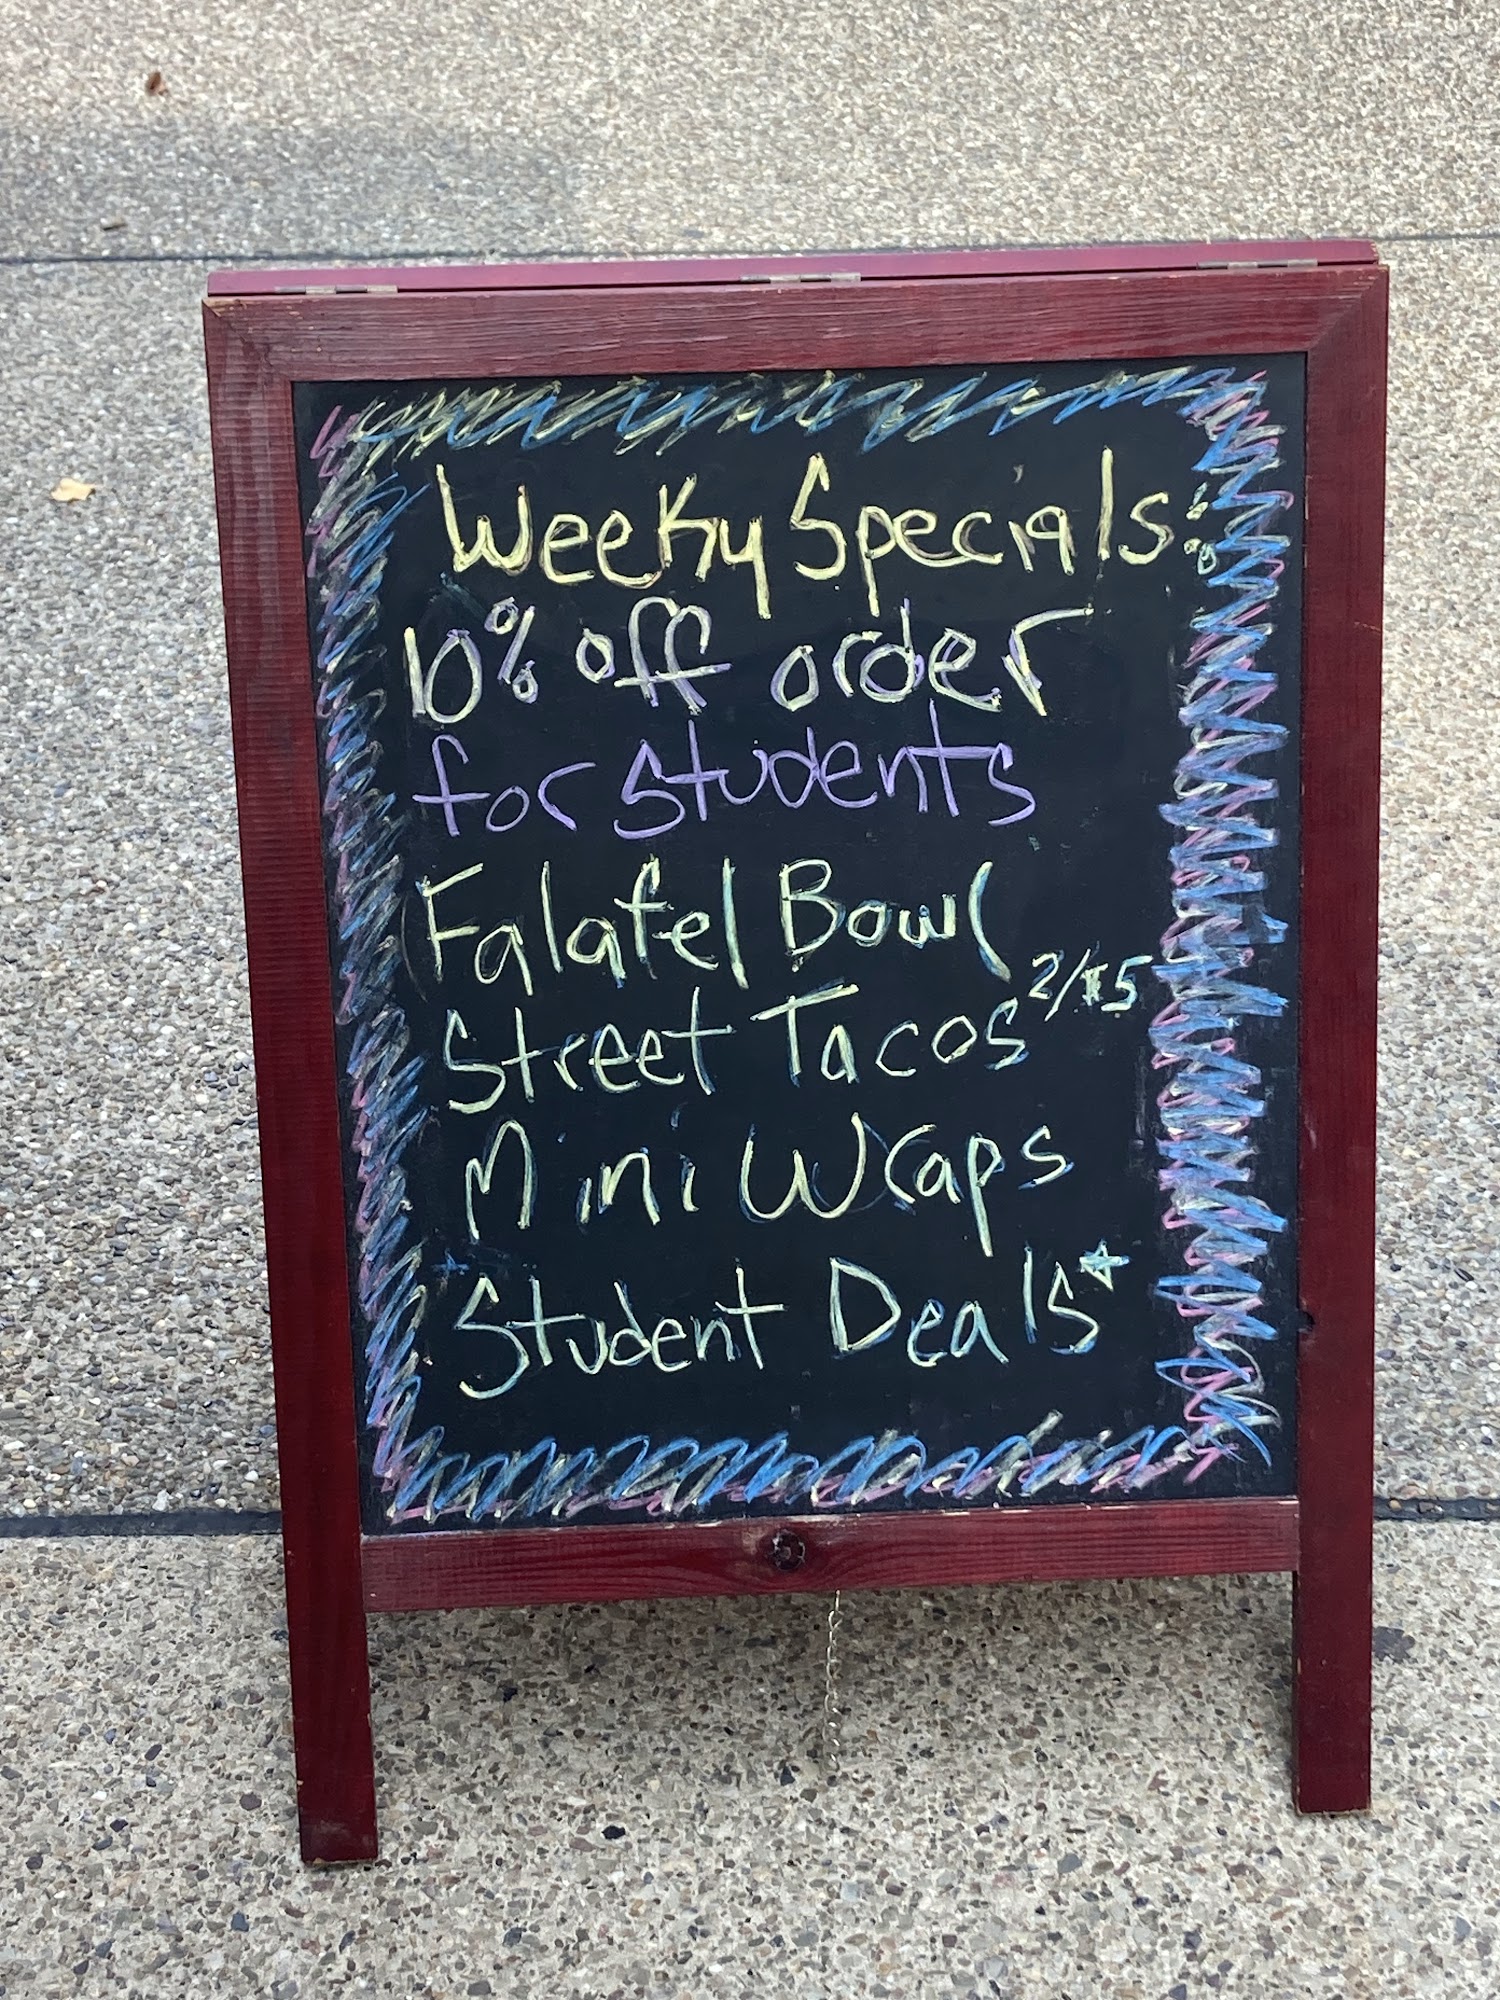 Weeky Specials:
10% off order
for students
Falafel Bowl
Street Tacos 2/$5
Mini Wraps
Student Deals*